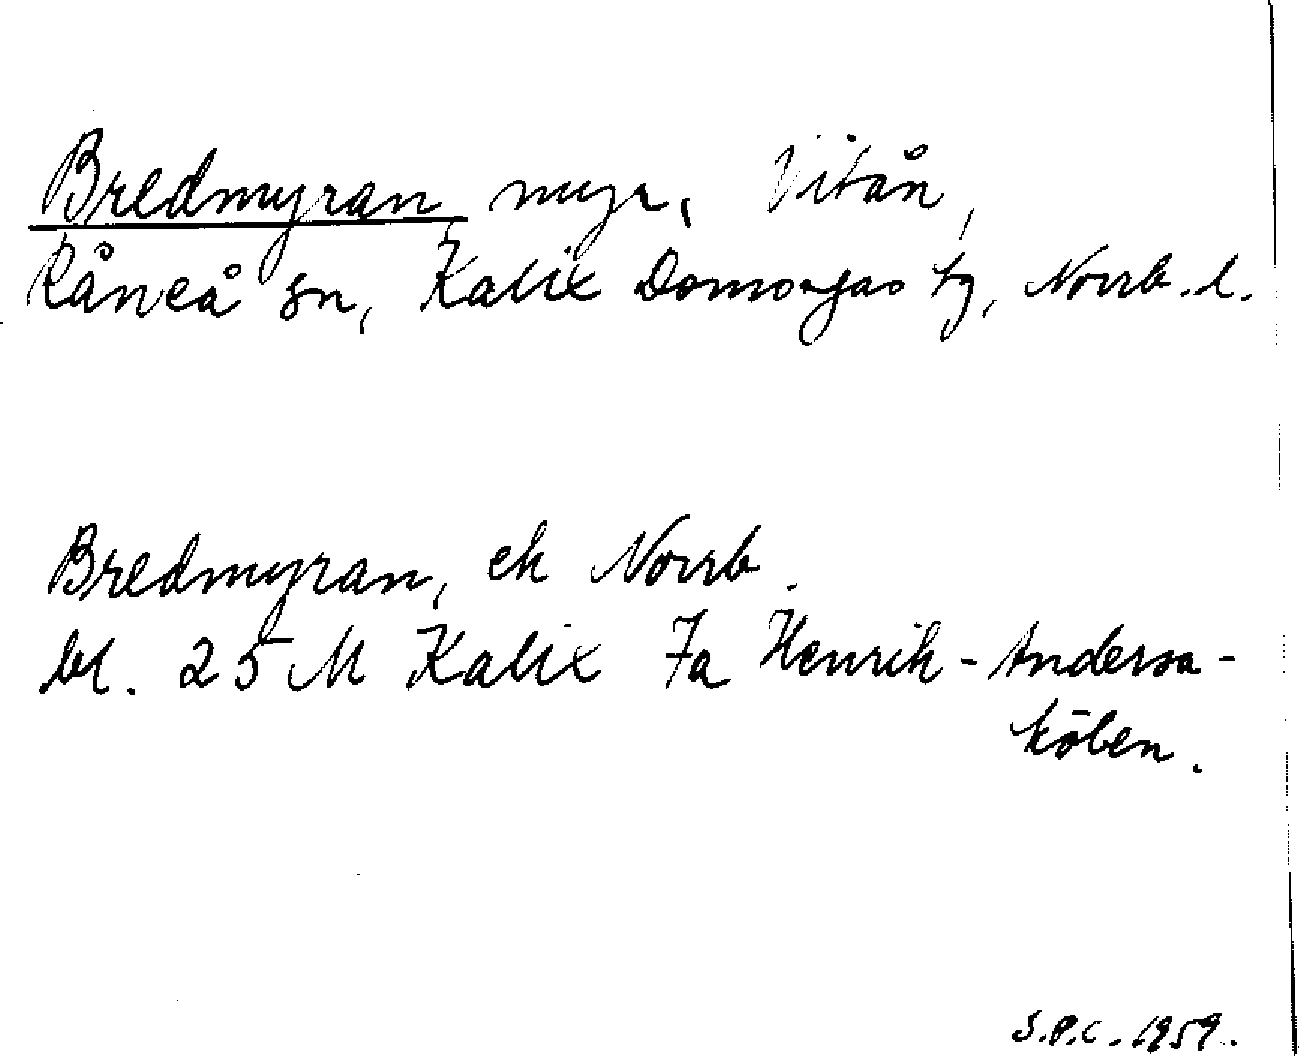 Bredmyran, myr, Vitån,
Råneå sn, Kalix Domsagas tg, Norrb. l.
Bredmyran, ek Norrb.
bl. 25 M Kalix Fa Henrik-Andersa-
köben.
S.P.C. 1959.